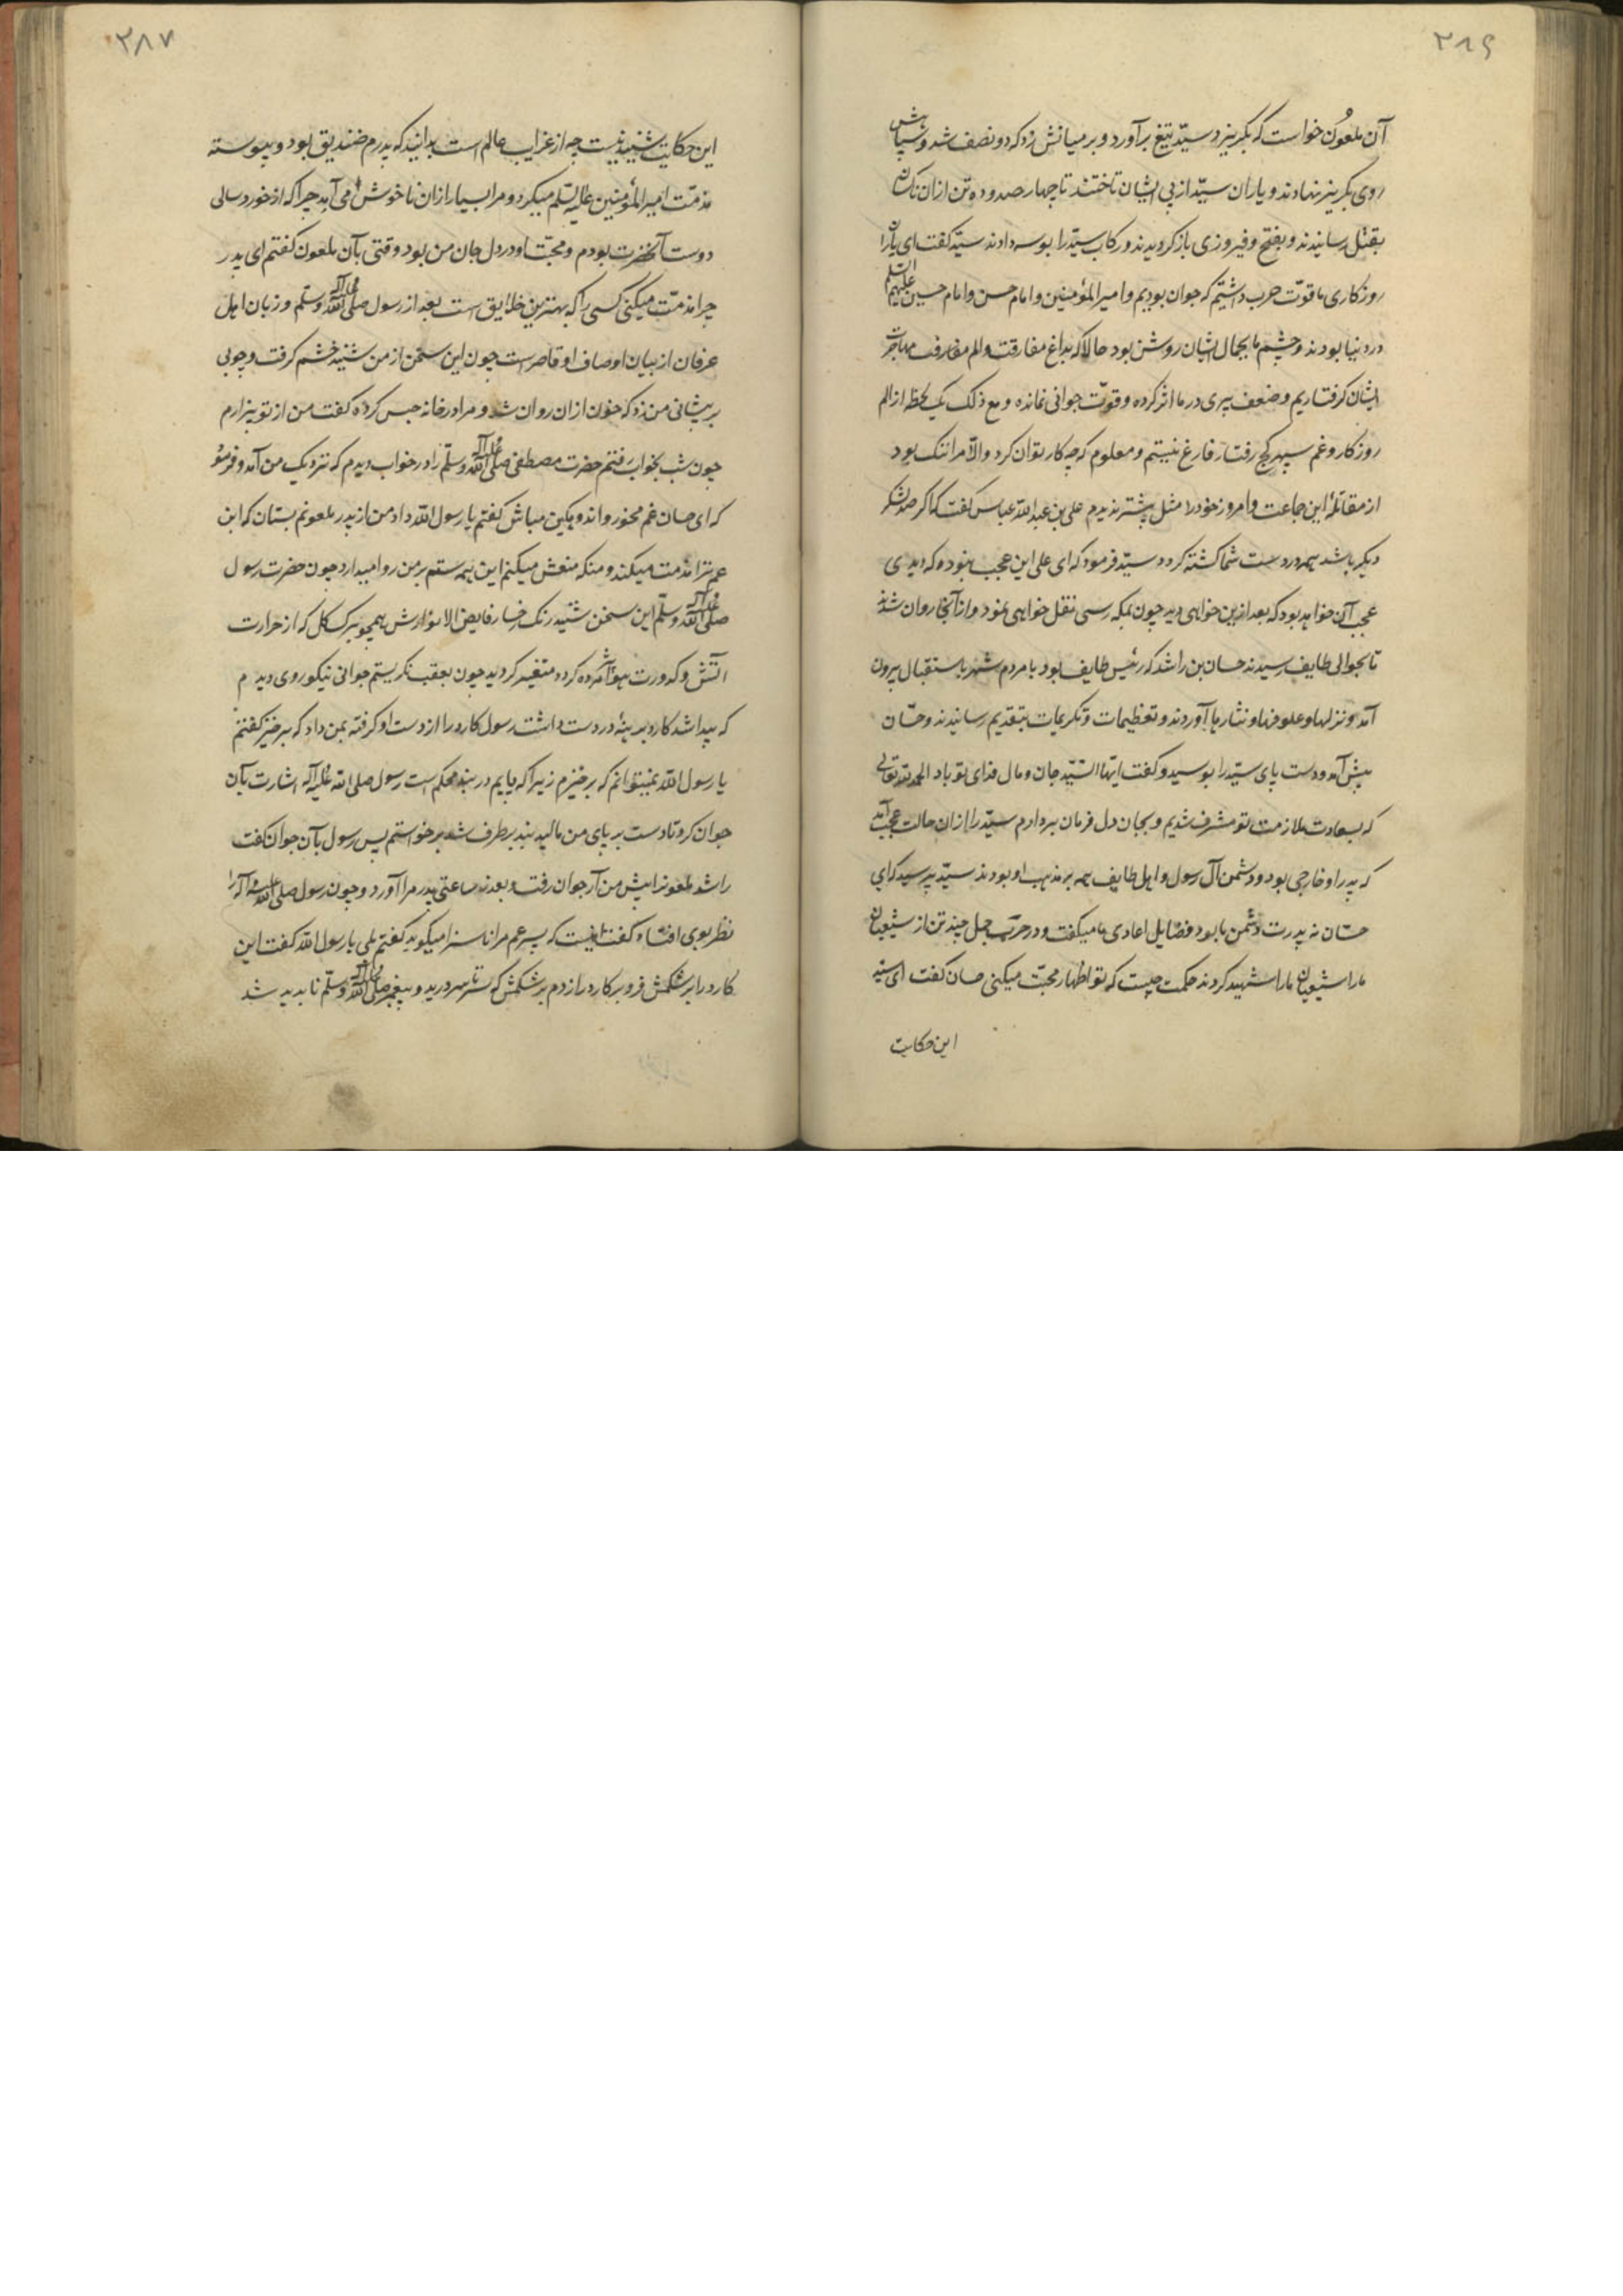 ۳۸۶
آن ملعون خواست که بکریزد سیّد تیغ برآورد و بر میانش زد که دو نصف شد و سپاهش
روی بکریز نهادند و یاران سیّد از پی ایشان تاختند تا چهار صد و ده تن از ان ناکسان
بقتل رسانیدند و بفتح و فیروزی باز کردیدند و رکاب سیّد را بوسه دادند سیّد کفت ای یاران
روزکاری ما قوّت حرب داشتیم که جوان بودیم و امیر المؤمنین و امام حسن و امام حسین علیهم السلم
در دنیا بودند و چشم ما بجمال ایشان روشن بود حالا که بداغ مفارقت و الم مفارقت مهاجرت
ایشان کرفتاریم و ضعف پیری در ما اثر کرده و قوّت جوانی نمانده و مع ذلک یک لحظه از الم
روزکار و غم سپهر کج رفتار فارغ نیستم و معلوم که چه کار توان کرد و الّا مرا ننک بود
از مقاتلهٔ این جماعت و امروز خود را مثل پیشتر ندیدم علی بن عبد الله عباس کفت که اکر صد لشکر
دیکر باشد همه در دست شما کشته کردد سیّد فرمود که ای علی این عجب نبوده که دیدی
عجب آن خواهد بود که بعد ازین خواهی دید چون بمکه رسی نقل خواهی نمود و از آنجا روان شدند
تا بحوالی طایف رسیدند حسان بن راشد که رئیس طایف بود با مردم شهر باستقبال بیرون
آمد و نزلها و علوفها و نثارها آوردند و تعظیمات و تکریمات بتقدیم رسانیدند و حسّان
پیش آمد و دست پای سیّد را بوسید و کفت ایّها السّیّد جان و مال فدای تو باد الحمد لله تعالی
که بسعادت ملازمت تو مشرف شدیم و بجان دل فرمان بردارم سیّد را از ان حالت عجب آمد
که پدر او خارجی بود و دشمن آل رسول و اهل طایف همه بر مذهب او بودند سیّد پرسید که ای
حسّان نه پدرت دشمن ما بود و فضایل اعادی ما میکفت و در حرب جمل چند تن از شیعیان
ما را شیعیان ما را شهید کردند حکمت چیست که تو اظهار محبّت میکنی حسان کفت ای سید
این حکایت
۳۸۷
این حکایت شنیدنیست چه از غرایب عالم است بدانید که پدرم ضندیق بود و پیوسته
مذمّت امیر المؤمنین علیه السّلم میکرد و مرا بسیار از ان ناخوش می آمد چرا که از خورد سالی
دوست آنحضرت بودم و محبّت او در دل جان من بود وقتی بآن ملعون کفتم ای پدر
چرا مذمّت میکنی کسی را که بهترین خلایق است بعد از رسول صلی الله علیه و آله وسلّم و زبان اهل
عرفان از بیان اوصاف او قاصر است چون این سخن از من شنید خشم کرفت و چوبی
بر پیشانی من زد که خون از ان روان شد و مرا در خانه حبس کرده کفت من از تو بیزارم
چون شب بخواب رفتم حضرت مصطفی صلی الله علیه و آله وسلّم را در خواب دیدم که نزدیک من آمد و فرمود
که ای حسان غم مخور و اندوهکین مباش کفتم یا رسول الله داد من از پدر ملعونم بستان که ابن
عم ترا مذمت میکند و منکه منعش میکنم این همه ستم بر من روا میدارد چون حضرت رسول
صلی الله علیه و آله وسلّم این سخن شنید رنک رخسار فایض الانوارش همچو برک کل که از حرارت
آتش و کدورت هوا پژمرده کردد متغیر کردید چون بعقب نکریستم جوانی نیکو روی دیدم
که پیدا شد کارد برهنهٔ در دست داشت رسول کارد را از دست او کرفته بمن داد که برخیز کفتم
یا رسول الله نمیتوانم که برخیزم زیرا که پایم در بند محکم است رسول صلی الله علیه و آله اشارت بآن
جوان کرد تا دست بر پای من مالید بند بر طرف شد برخواستم پس رسول بآن جوان کفت
راشد ملعونرا پیش من آر جوان رفت و بعد از ساعتی پدر مرا آورد و چون رسول صلی الله علیه و آله را
نظر بوی افتاد کفت اینست که پسر عم مرا ناسزا میکوید کفتم بلی یا رسول الله کفت این
کارد را بر شکمش فرو بر کارد را زدم بر شکمش که سرتاسر درید و پیغمبر صلی الله علیه و آله وسلّم ناپدید شد